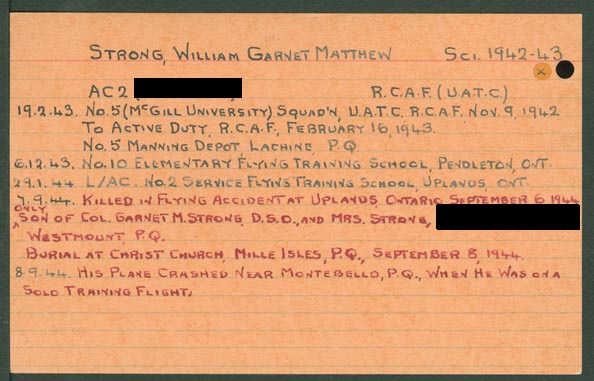 STRONG, WILLIAM GARNET MATTHEW SCI. 1942-43
AC2 R.C.A.F. (U.A.T.C.)
19.2.43. NO. 5 (MCGILL UNIVERSITY) SQUAD'N, U.A.T.C. R.C.A.F. NOV. 9, 1942
TO ACTIVE DUTY, R.C.A.F., FEBRUARY 16, 1943.
NO. 5 MANNING DEPOT, LACHINE, P.Q.
6.12.43. NO. 10 ELEMENTARY FLYING TRAINING SCHOOL, PENDLETON, ONT.
29.1.44 L/AC. NO. 2 SERVICE FLYING TRAINING SCHOOL, UPLANDS, ONT.
7.9.44. KILLED IN FLYING ACCIDENT AT UPLANDS, ONTARIO SEPTEMBER 6 1944
ONLY
SON OF COL. GARNET M. STRONG, D.S.O., AND MRS. STRONG,
WESTMOUNT, P.Q.
BURIAL AT CHRIST CHURCH, MILLE ISLES, P.Q., SEPTEMBER 8, 1944.
8.9.44. HIS PLANE CRASHED NEAR MONTEBELLO, P.Q., WHEN HE WAS ON A
SOLO TRAINING FLIGHT.